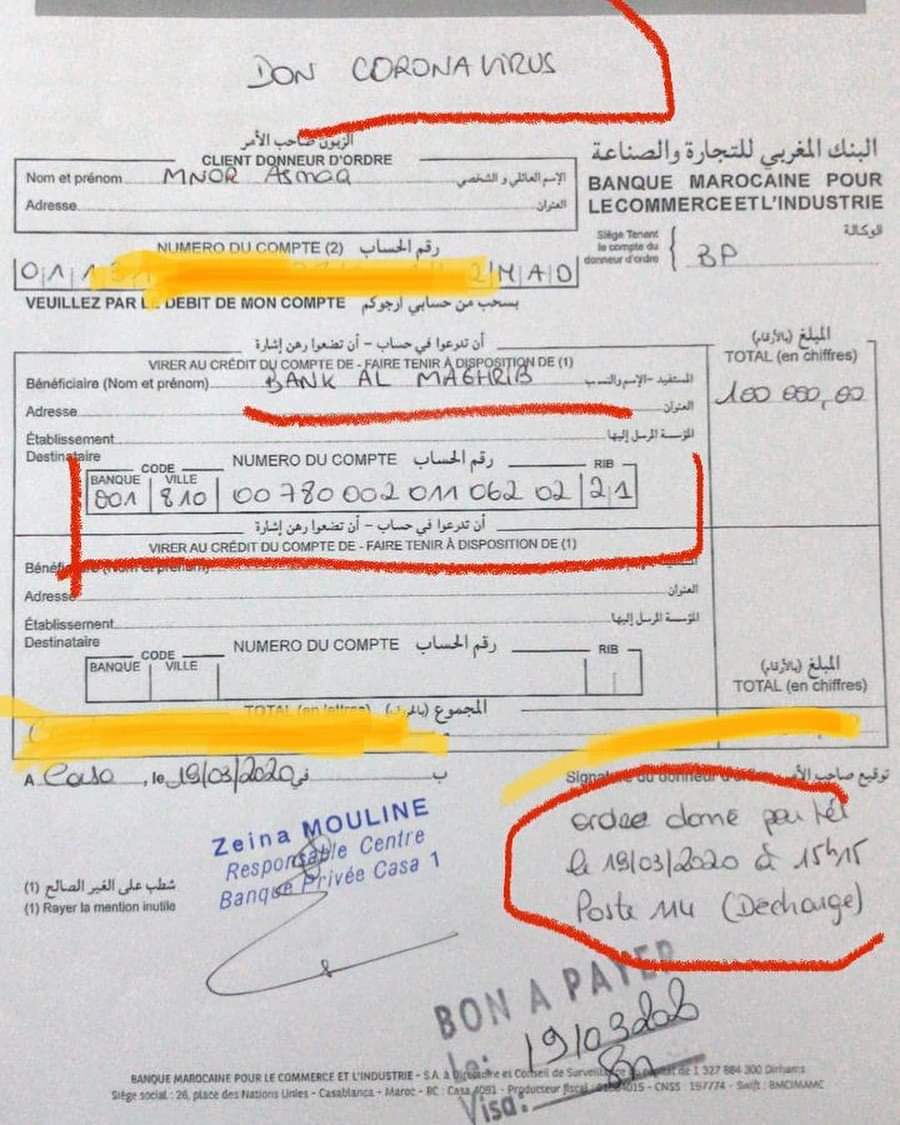 DON CORONAVIRUS
الزبون صاحب الأمر
CLIENT DONNEUR D'ORDRE
Nom et prénom MNOR Asmaa الإسم العائلي و الشخصي
Adresse العنوان
البنك المغربي للتجارة والصناعة
BANQUE MAROCAINE POUR
LE COMMERCE ET L'INDUSTRIE
الوكالة
Siège Tenant
le compte du
donneur d'ordre
BP
NUMERO DU COMPTE (2) رقم الحساب
MAD
VEUILLEZ PAR LE DEBIT DE MON COMPTE بسحب من حسابي أرجوكم
أن تدرعوا في حساب - أن تضعوا رهن إشارة
VIRER AU CRÉDIT DU COMPTE DE - FAIRE TENIR À DISPOSITION DE (1)
المبلغ (بالأرقام)
TOTAL (en chiffres)
100 000,00
Bénéficiaire (Nom et prénom) BANK AL MAGHRIB المستفيد - الإسم والنسب
Adresse العنوان
Établissement المؤسسة المرسل إليها
Destinataire
CODE NUMERO DU COMPTE رقم الحساب RIB
BANQUE VILLE
001 810 00 780 002 011 062 02 21
أن تدرعوا في حساب - أن تضعوا رهن إشارة
VIRER AU CRÉDIT DU COMPTE DE - FAIRE TENIR À DISPOSITION DE (1)
Bénéficiaire (Nom et prénom)
Adresse العنوان
Établissement المؤسسة المرسل إليها
Destinataire
CODE NUMERO DU COMPTE رقم الحساب RIB
BANQUE VILLE
المبلغ (بالأرقام)
TOTAL (en chiffres)
TOTAL (en lettres) المجموع
A Casa , le 19/03/2020 في ب
Signature du donneur d'ordre توقيع صاحب الأمر
Zeina MOULINE
Responsable Centre
Banque Privée Casa 1
ordre donné par tél
le 19/03/2020 à 15h15
Poste 114 (Décharge)
(1) شطب على الغير الصالح
(1) Rayer la mention inutile
BON A PAYER
le: 19/03/2020
Visa:
BANQUE MAROCAINE POUR LE COMMERCE ET L'INDUSTRIE - S.A. à Directoire et Conseil de Surveillance au capital de 1 327 884 300 Dirhams
Siège social : 26, place des Nations Unies - Casablanca - Maroc - RC : Casa 4091 - CNSS : 197774 - Swift : BMCIMAMC